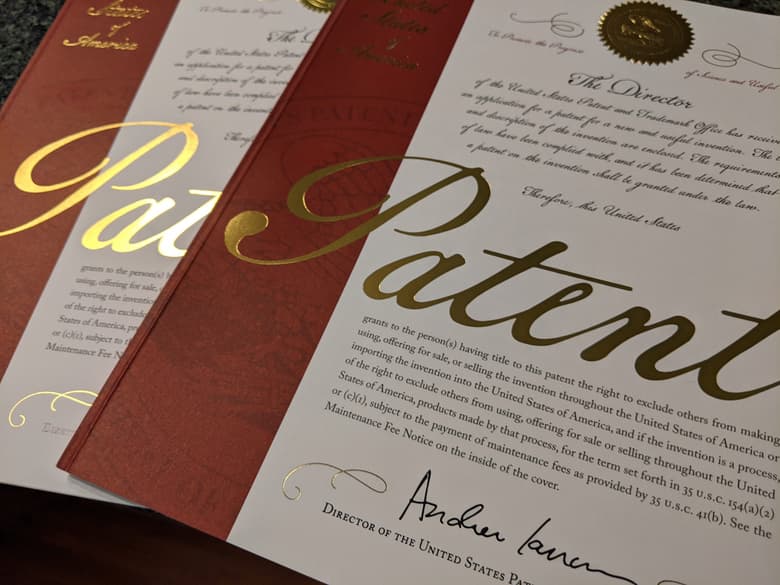 States
of
America
To Promote the Progress
The D
of the United States Patent
an application for a patent for
and description of the invention
of law have been complied
a patent on the inven
Therefo
Patent
grants to the person(s) ha
using, offering for sale,
importing the invention
of the right to exclude
States of America, pro
or (c)(1), subject to th
Maintenance Fee N
United
States
of
America
To Promote the Progress
of Science and Useful
The Director
of the United States Patent and Trademark Office has receiv
an application for a patent for a new and useful invention. The
and description of the invention are enclosed. The requirements
of law have been complied with, and it has been determined that
a patent on the invention shall be granted under the law.
Therefore, this United States
Patent
grants to the person(s) having title to this patent the right to exclude others from making,
using, offering for sale, or selling the invention throughout the United States of America or
importing the invention into the United States of America, and if the invention is a process,
of the right to exclude others from using, offering for sale or selling throughout the United
States of America, products made by that process, for the term set forth in 35 U.S.C. 154(a)(2)
or (c)(1), subject to the payment of maintenance fees as provided by 35 U.S.C. 41(b). See the
Maintenance Fee Notice on the inside of the cover.
Andrei Iancu
Director of the United States Pat